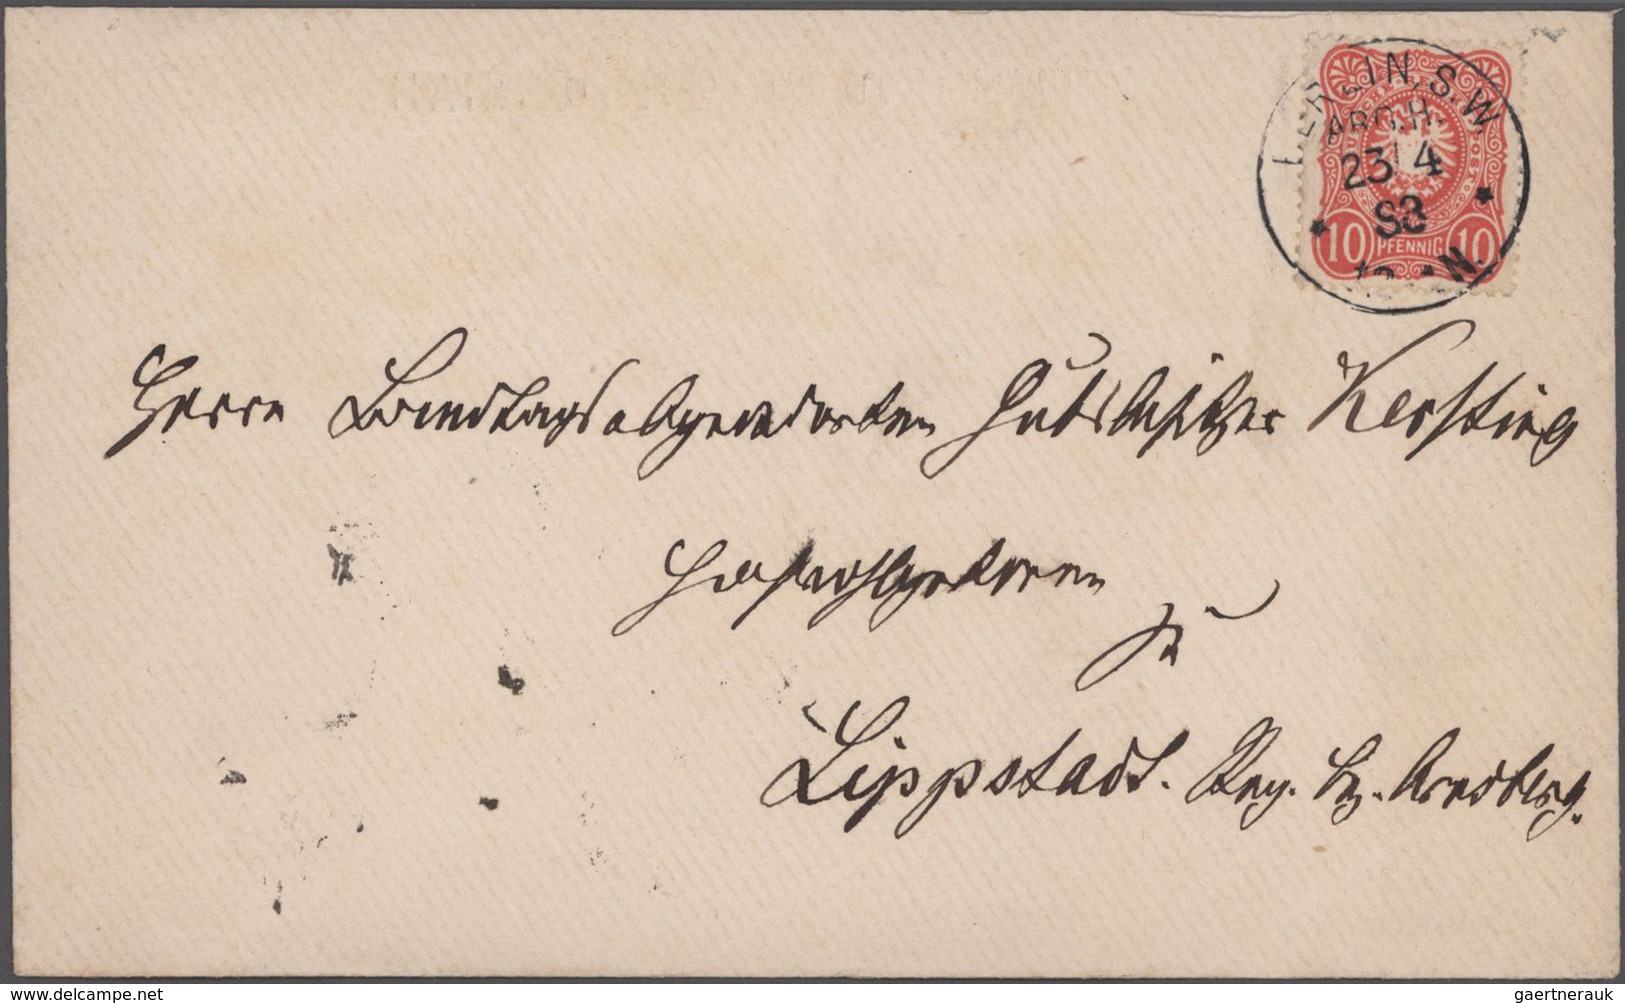 BERLIN, S.W.
ARG.H.
23/4
83
10 PFENNIG 10
N.
Herrn Landtagsabgeordneten Gutsbesitzer Kersting
Hochwohlgeboren
zu
Lippstadt. Reg. Bz. Arnsberg.
delcampe.net
gaertnerauk